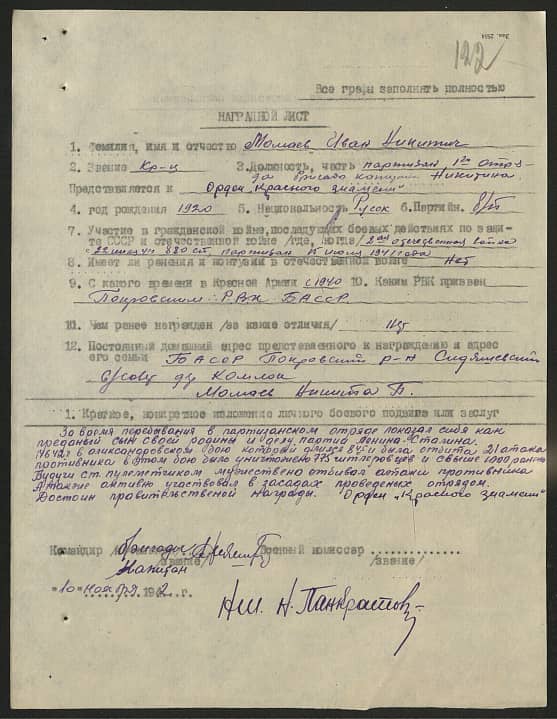 Зак. 2554
122
Все графы заполнять полностью
НАГРАДНОЙ ЛИСТ
1. Фамилия, имя и отчество Момаев Иван Никитич
2. Звание Кр-ц 3. Должность, часть партизан 1го отря-
да Бригада капитана Никитина.
Представляется к Орден "Красного знамени"
4. год рождения 1920 5. Национальность Русск 6. Партийн. б/п
7. Участие в гражданской войне, последующих боевых действиях по защи-
те СССР и отечественной войне /где, когда/ 2ая отечественная война
с 22 июля 880 ст. партизан 15 июля 1941 года
8. Имеет ли ранения и контузии в отечественной войне Нет
9. С какого времени в Красной Армии с 1940 10. Каким РВК призван
Покровским РВК БАССР
10. Чем ранее награжден /за какие отличия/ нет
12. Постоянный домашний адрес представленного к награждению и адрес
его семьи БАССР Покровский р-н
с/совет
Момаев Никита Б.
1. Краткое, конкретное изложение личного боевого подвига или заслуг
За время пребывания в партизанском отряде показал себя как
преданый сын своей родины и делу партии Ленина-Сталина.
в бою который длился и была отбита 21 атака
противника в этом бою было уничтожено 775 гитлеровцев и свыше 1000 ранено
Будучи ст. пулеметчиком мужествено отбивал атаки противника
А также активно участвовал в засадах проведеных отрядом.
Достоин правительственой награды. Орден "Красного знамени"
Командир Бригады Военный комиссар ...............
Капитан /звание/ /звание/
"10" ноября 1942 г.
НШ. Н. Панкратов